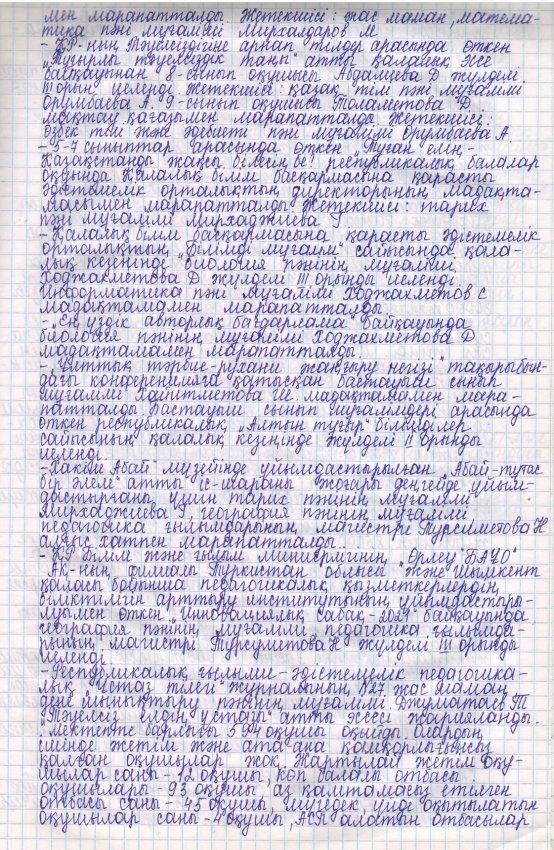 мен марапатталды. Жетекшісі: жас маман, матема-
тика пәні мұғалімі Мирхалдаров М
- ҚР-ның Тәуелсіздігіне арнап тілдер арасында өткен
„Тұғырлы тәуелсіздік таңы" атты қалалық эссе
байқауынан 8-сынып оқушысы Абдалиева Д жүлделі
III орын иеленді Жетекшісі: қазақ тілі пәні мұғалімі
Орумбаева А. 9-сынып оқушысы Толаметова Д
мақтау қағазымен марапатталды. Жетекшісі:
өзбек тілі және әдебиеті пәні мұғалімі Орумбаева А.
- 5-7 сыныптар арасында өткен „Туған елің-
Қазақстанды жақсы білесің бе! республикалық балалар
оқуында Қалалық білім басқармасына қарасты
әдістемелік орталықтың директорының мадақта-
масымен марапатталды. Жетекшісі: тарих
пәні мұғалімі Мирхаджиева Г
- Қалалық білім басқармасына қарасты әдістемелік
орталықтың „Білімді мұғалім" сайысында қала-
лық кезеңінде биология пәнінің мұғалімі
Ходжахметова Д жүлделі III орынды иеленді.
Информатика пәні мұғалімі Ходжахметов С
мадақтамамен марапатталды.
- „Ең үздік авторлық бағдарлама" байқауында
биология пәнінің мұғалімі Ходжахметова Д
мадақтамамен марапатталды.
- „Ұлттық тәрбие-рухани жаңғыру негізі" тақырыбын-
дағы конференцияға қатысқан бастауыш сынып
мұғалімі Хашитметова Ш. мадақтамамен мара-
патталды. Бастауыш сынып мұғалімдері арасында
өткен республикалық „Алтын тұғыр" білімділер
сайысының қалалық кезеңінде жүлделі II орынды
иеленді.
- „Хакім Абай" музейінде ұйымдастырылған „Абай-тұтас
бір әлем" атты іс-шараны жоғары деңгейде ұйым-
дастырғаны үшін тарих пәнінің мұғалімі
Мирхаджиева Г, география пәнінің мұғалімі
педагогика ғылымдарының магистрі Турсиметова Н
алғыс хатпен марапатталды.
- ҚР Білім және ғылым Министрлігінің „Өрлеу" БАҰО"
АҚ-ның филиалы Түркістан облысы және Шымкент
қаласы бойынша педагогикалық қызметкерлердің
біліктілігін арттыру институтының ұйымдастыры-
луымен өткен „Инновациялық сабақ-2019" байқауында
география пәнінің мұғалімі педагогика ғылымда-
рының магистрі Турсуметова Н жүлделі III орынды
иеленді.
- Республикалық ғылыми-әдістемелік педагогика-
лық „Ұстаз тілегі" журналының №27 жас маман,
дене шынықтыру пәнінің мұғалімі Джуматаев Т
„Тәуелсіз елдің ұстазы" атты эссесі жарияланды.
Мектепте барлығы 594 оқушы оқиды. Олардың
ішінде жетім және ата ана қамқорлығынсыз
қалған оқушылар жоқ. Жартылай жетім оқу-
шылар саны-12 оқушы, көп балалы отбасы
оқушылары - 93 оқушы, аз қамтамасыз етілген
отбасы саны - 45 оқушы, мүгедек, үйде оқытылатын
оқушылар саны-4 оқушы, АСП алатын отбасылар